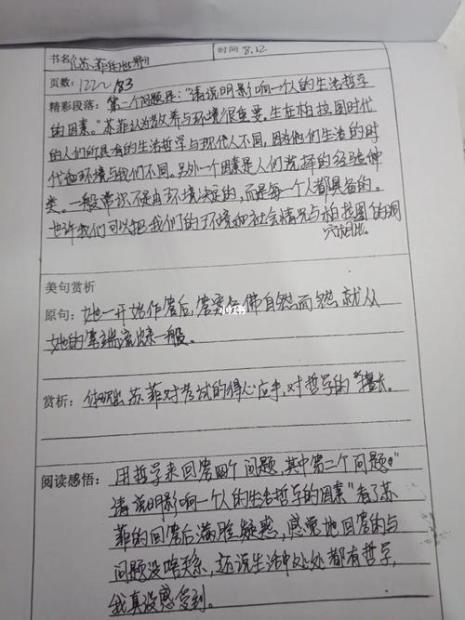 书名《苏菲的世界》 时间 8.12
页数：122～183
精彩段落：第二个问题是："请说明影响一个人的生活哲学
的因素。"苏菲认为教养与环境很重要。生在柏拉图时代
的人们所具有的生活哲学与现代人不同，因为他们生活的时
代和环境与我们不同。另外一个因素是人们选择的经验种
类。一般常识不是由环境决定的，而是每一个人都具备的。
也许我们可以把我们的环境和社会情况与柏拉图的洞
穴相比。
美句赏析
原句：她一开始作答后，答案仿佛自然而然就从
她的笔端流出来一般。
赏析：体现出苏菲对考试的得心应手，对哲学的"擅长。
阅读感悟：用哲学来回答四个问题，其中第二个问题："
请说明影响一个人的生活哲学的因素"看了苏
菲的回答后满脸疑惑，感觉她回答的与
问题没啥关系，还说生活中处处都有哲学，
我真没感受到。